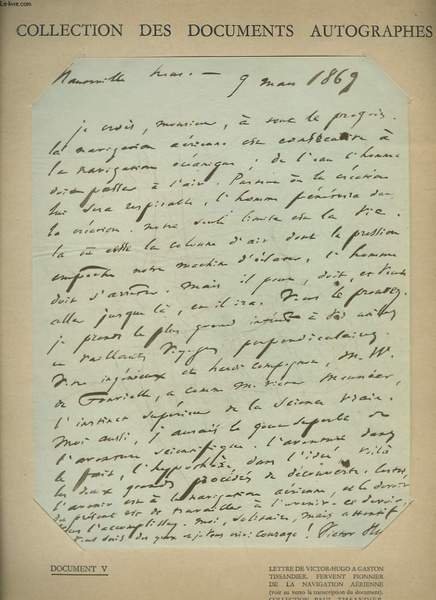 COLLECTION DES DOCUMENTS AUTOGRAPHES
Hauteville house — 9 mars 1869
je crois, monsieur, à tous les progrès.
la navigation aérienne est consécutive à
la navigation océanique ; de l'eau l'homme
doit passer à l'air. Partout où la création
lui sera respirable, l'homme pénétrera dans
la création. notre seule limite est la vie.
là où cesse la colonne d'air dont la pression
empêche notre machine d'éclater, l'homme
doit s'arrêter. Mais il peut, doit, et veut
aller jusque là, et il ira. Vous le prouvez.
je prends le plus grand intérêt à vos utiles
et vaillants voyages perpendiculaires.
Votre ingénieux et hardi compagnon, M. W.
de Fonvielle, a comme M. Victor Meunier,
l'instinct supérieur de la science vraie.
Moi aussi, j'aurais le goût superbe de
l'aventure scientifique. l'aventure dans
le fait, l'hypothèse dans l'idée, voilà
les deux grands procédés de découverte. Certes
l'avenir est à la navigation aérienne, et le devoir
du présent est de travailler à l'avenir. ce devoir,
vous l'accomplissez. Moi, solitaire, mais attentif
je vous suis des yeux et je vous crie : courage ! Victor Hu
DOCUMENT V
LETTRE DE VICTOR-HUGO A GASTON
TISSANDIER, FERVENT PIONNIER
DE LA NAVIGATION AÉRIENNE
(voir au verso la transcription du document).
COLLECTION PAUL TISSANDIER